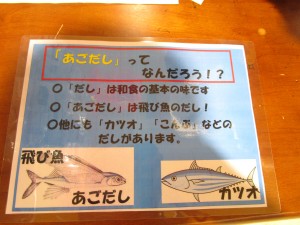 「あごだし」って
なんだろう!?
○「だし」は和食の基本の味です
○「あごだし」は飛び魚のだし!
○他にも「カツオ」「こんぶ」などの
だしがあります。
飛び魚
あごだし
カツオ